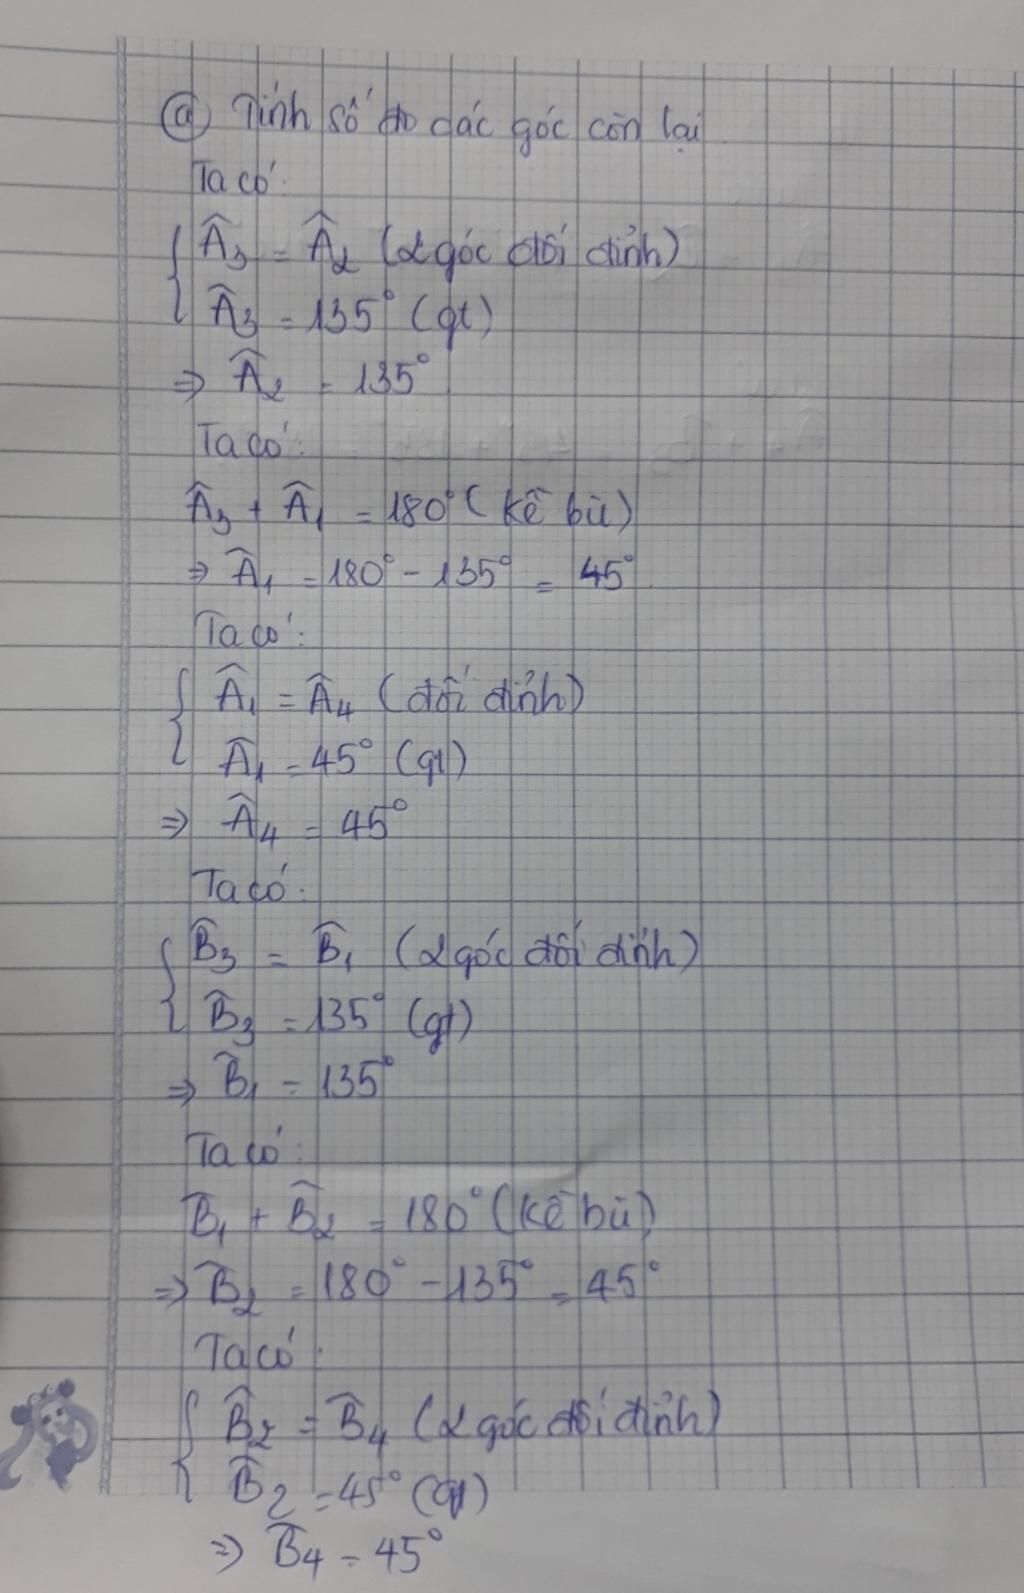 ⓐ Tính số đo các góc còn lại
Ta có:
Â₃ = Â₂ (2 góc đối đỉnh)
Â₃ = 135° (gt)
⇒ Â₂ = 135°
Ta có:
Â₃ + Â₁ = 180° (kề bù)
⇒ Â₁ = 180° - 135° = 45°
Ta có:
Â₁ = Â₄ (đối đỉnh)
Â₁ = 45° (gt)
⇒ Â₄ = 45°
Ta có:
B̂₃ = B̂₁ (2 góc đối đỉnh)
B̂₃ = 135° (gt)
⇒ B̂₁ = 135°
Ta có:
B̂₁ + B̂₂ = 180° (kề bù)
⇒ B̂₂ = 180° - 135° = 45°
Ta có:
B̂₂ = B̂₄ (2 góc đối đỉnh)
B̂₂ = 45° (gt)
⇒ B̂₄ = 45°